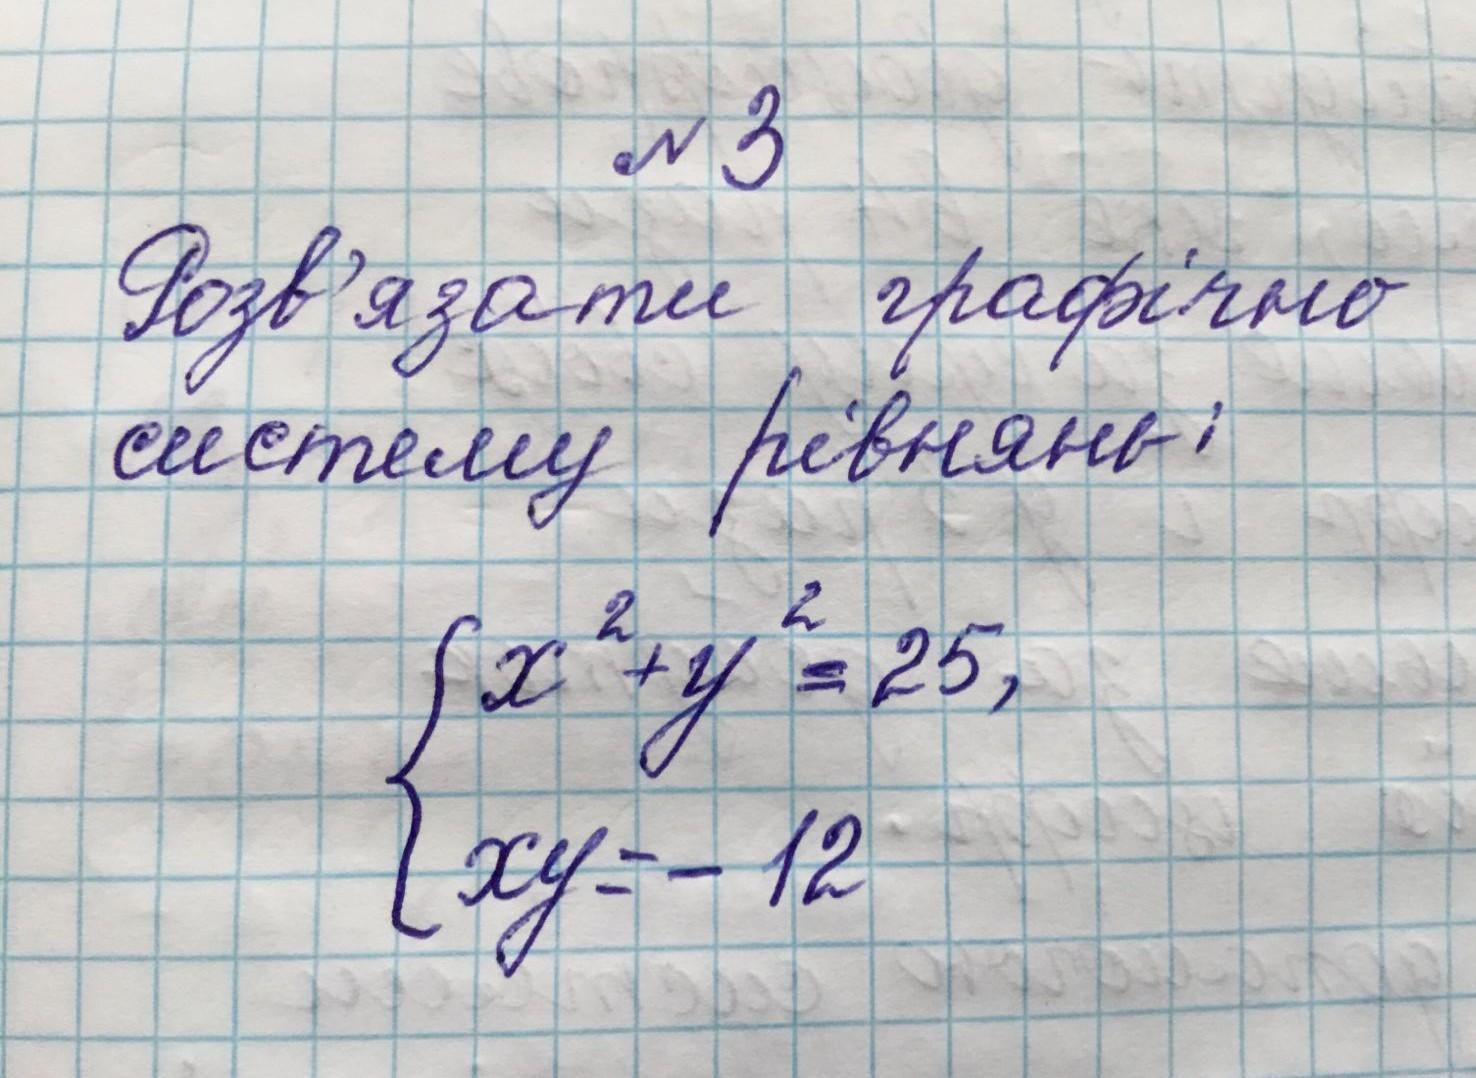 № 3
Розв'язати графічно
систему рівнянь:
x² + y² = 25,
xy = - 12